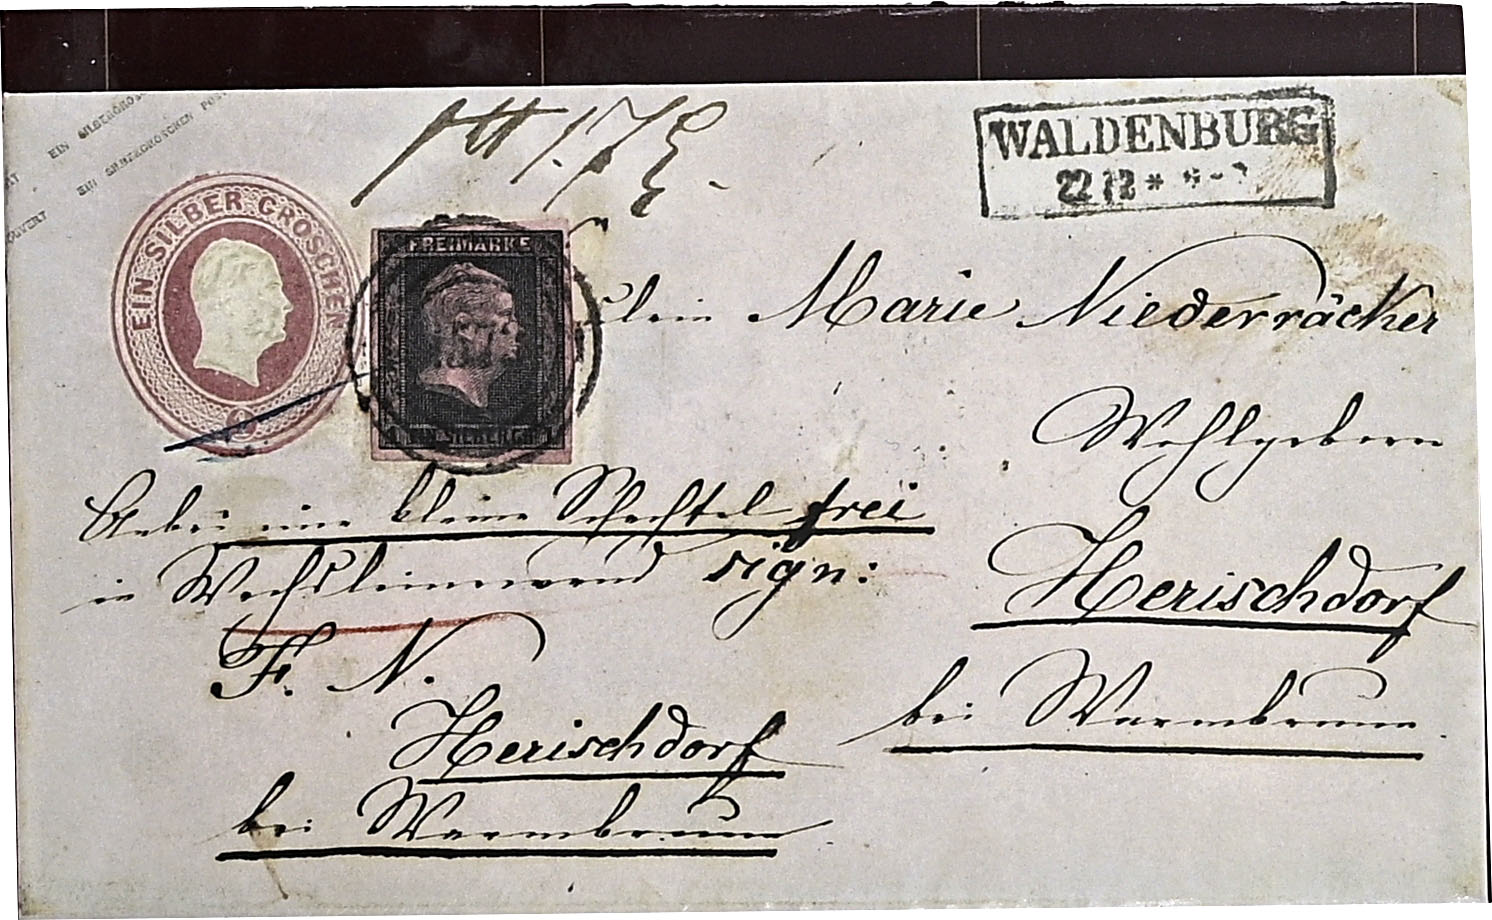 EIN SILBERGROS
EIN SILBERGROSCHEN POS
OUVERT
EIN SILBER GROSCHEN
FREIMARKE
1 EIN SILBERGR. 1
WALDENBURG
22 12 *
Marie Niederräcker
Wohlgeboren
Herischdorf
bei Warmbrunn
Anbei eine kleine Schachtel frei
in Wachsleinewand sign:
F. N.
Herischdorf
bei Warmbrunn